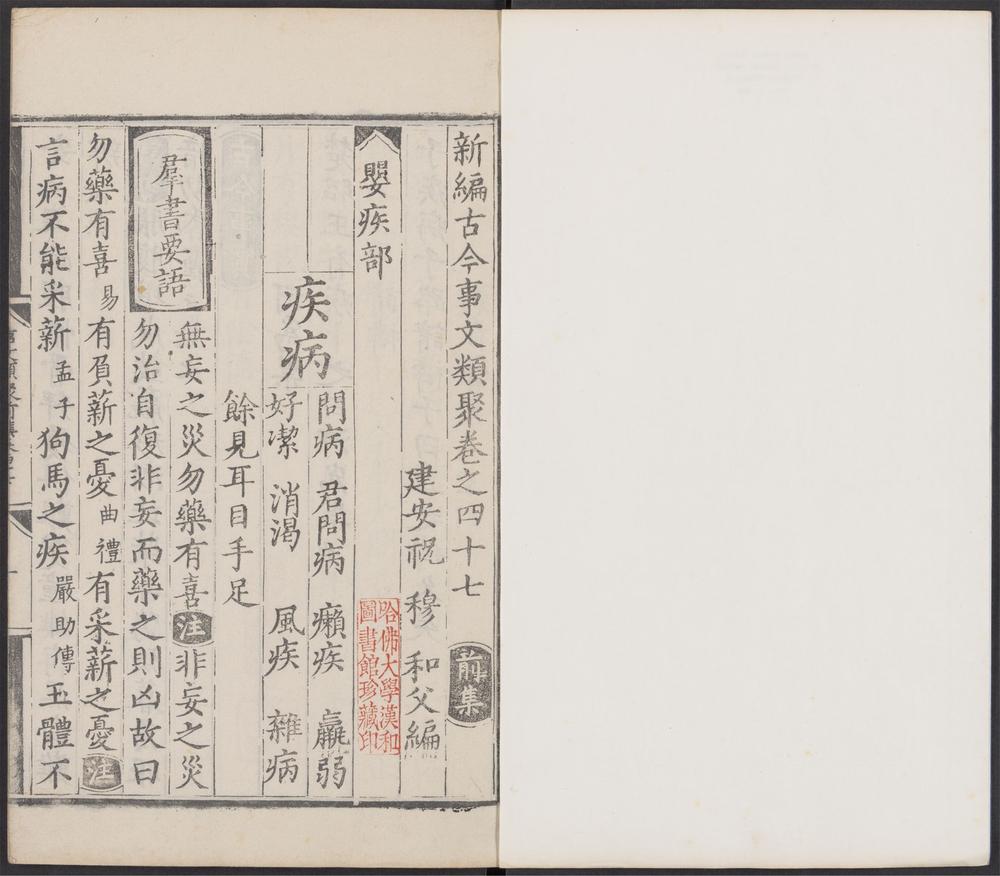 新編古今事文類聚卷之四十七 前集
建安祝 穆 和父編
嬰疾部
疾病
問病 君問病 癩疾 羸弱
好潔 消渴 風疾 雜病
餘見耳目手足
羣書要語
無妄之災勿藥有喜注非妄之災
勿治自復非妄而藥之則凶故曰
勿藥有喜易有負薪之憂曲禮有采薪之憂注
言病不能采薪孟子狗馬之疾嚴助傳玉體不
哈佛大學漢和
圖書館珍藏印